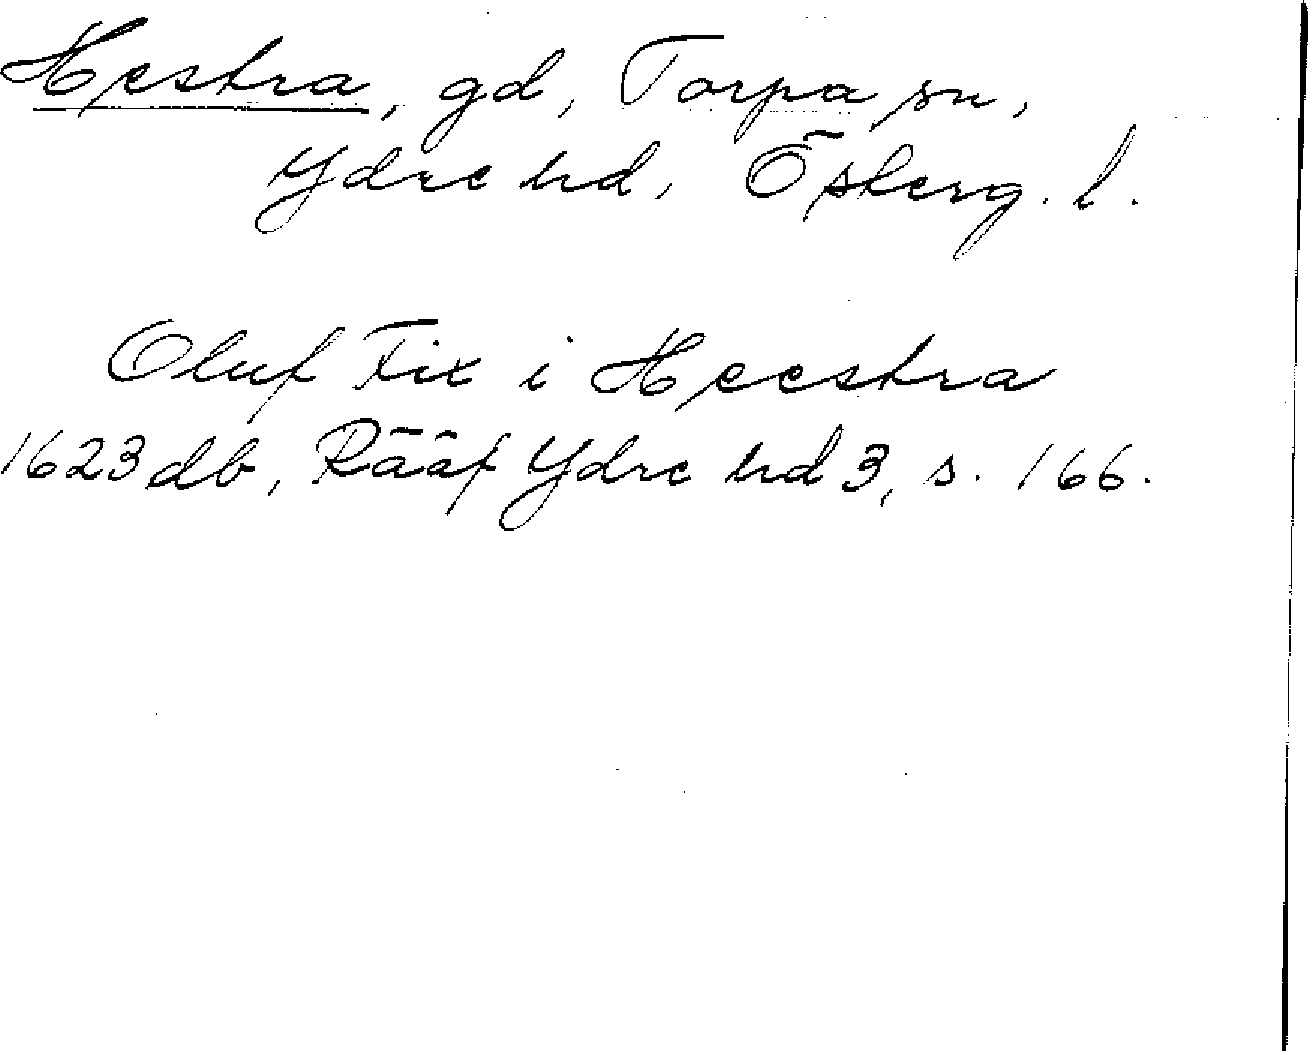 Hestra, gd, Torpa sn,
Ydre hd, Österg. l.
Oluf Fix i Heestra
1623 db, Rääf Ydre hd 3, s. 166.